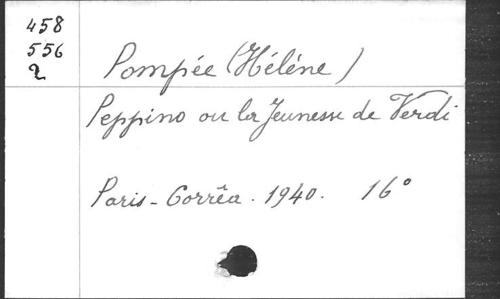 458
556
2
Pompée (Hélène)
Peppino ou la Jeunesse de Verdi
Paris - Corrêa. 1940. 16°